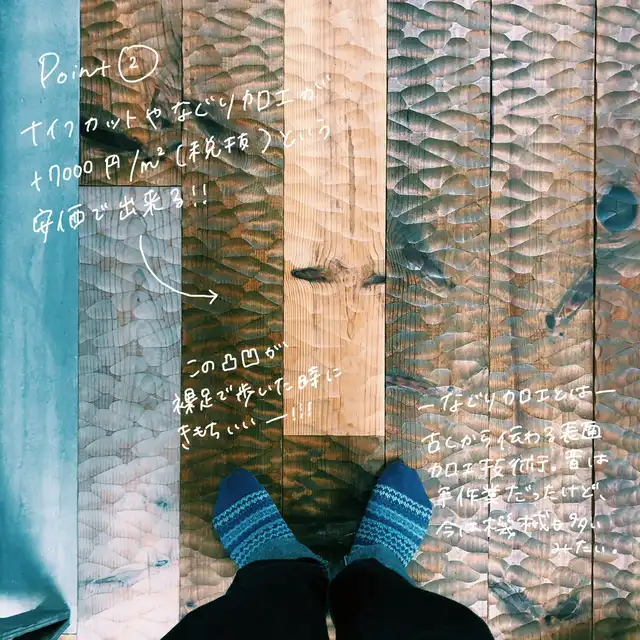 Point ②
ナイフカットやなぐり加工が
+7000円/m²(税抜)という
安価で出来る!!
この凸凹が
裸足で歩いた時に
きもちいいー!!!
ーなぐり加工とはー
古くから伝わる表面
加工技術。昔は
手作業だったけど、
今は機械も多い
みたい。